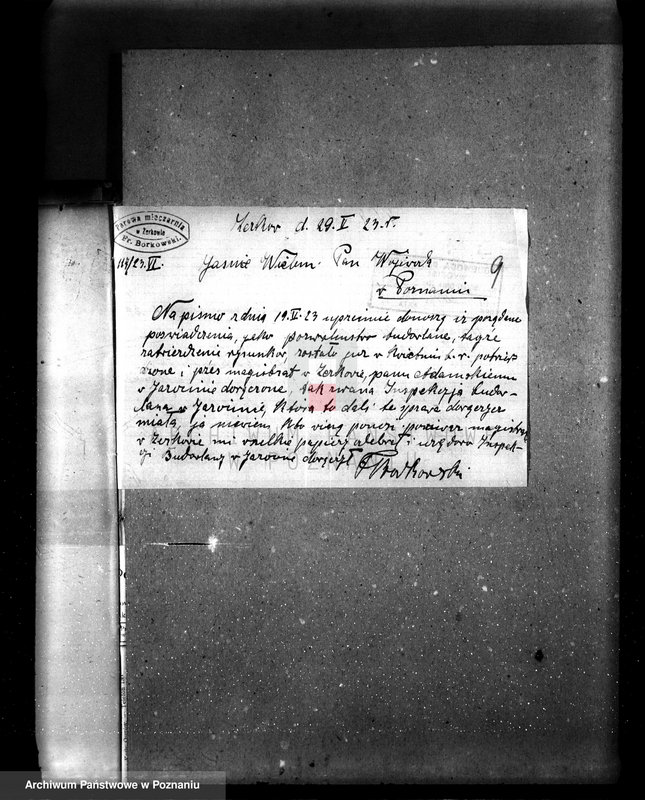 Parowa mleczarnia
w Żerkowie
Fr. Borkowski.
Żerków d. 29. V 23 r.
118/23. VI.
Jaśnie Wielm. Pan Wojewoda
9
w Poznaniu
Na pismo z dnia 19. V. 23 uprzejmie donoszę iż pożądane
poświadczenia, jako pozwoleństwo budowlane, tudzież
zatwierdzenie rysunków, zostało już w kwietniu b. r.
i przez magistrat w Żerkowie, panu Adamskiemu
w Jarocinie doręczone, tak zwana Inspekcja budo-
lana w Jarocinie, która to dalej te sprawę doręczyć
miała, ja niewiem kto winę ponosi ponieważ magistrat
w Żerkowie mi wszelkie papiery odebrał i urzędowi Inspek-
cji Budowlany w Jarocinie doręczył.
F Borkowski
Archiwum Państwowe w Poznaniu